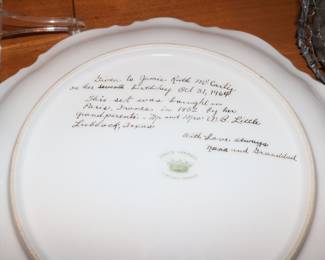 Given to Jamie Ruth McCarty
on her seventh birthday Oct 31, 1964
This set was bought in
Paris, France in 1902 by her
grandparents - Mr and Mrs W. B. Little
Lubbock, Texas
With Love always
Nana and Granddad